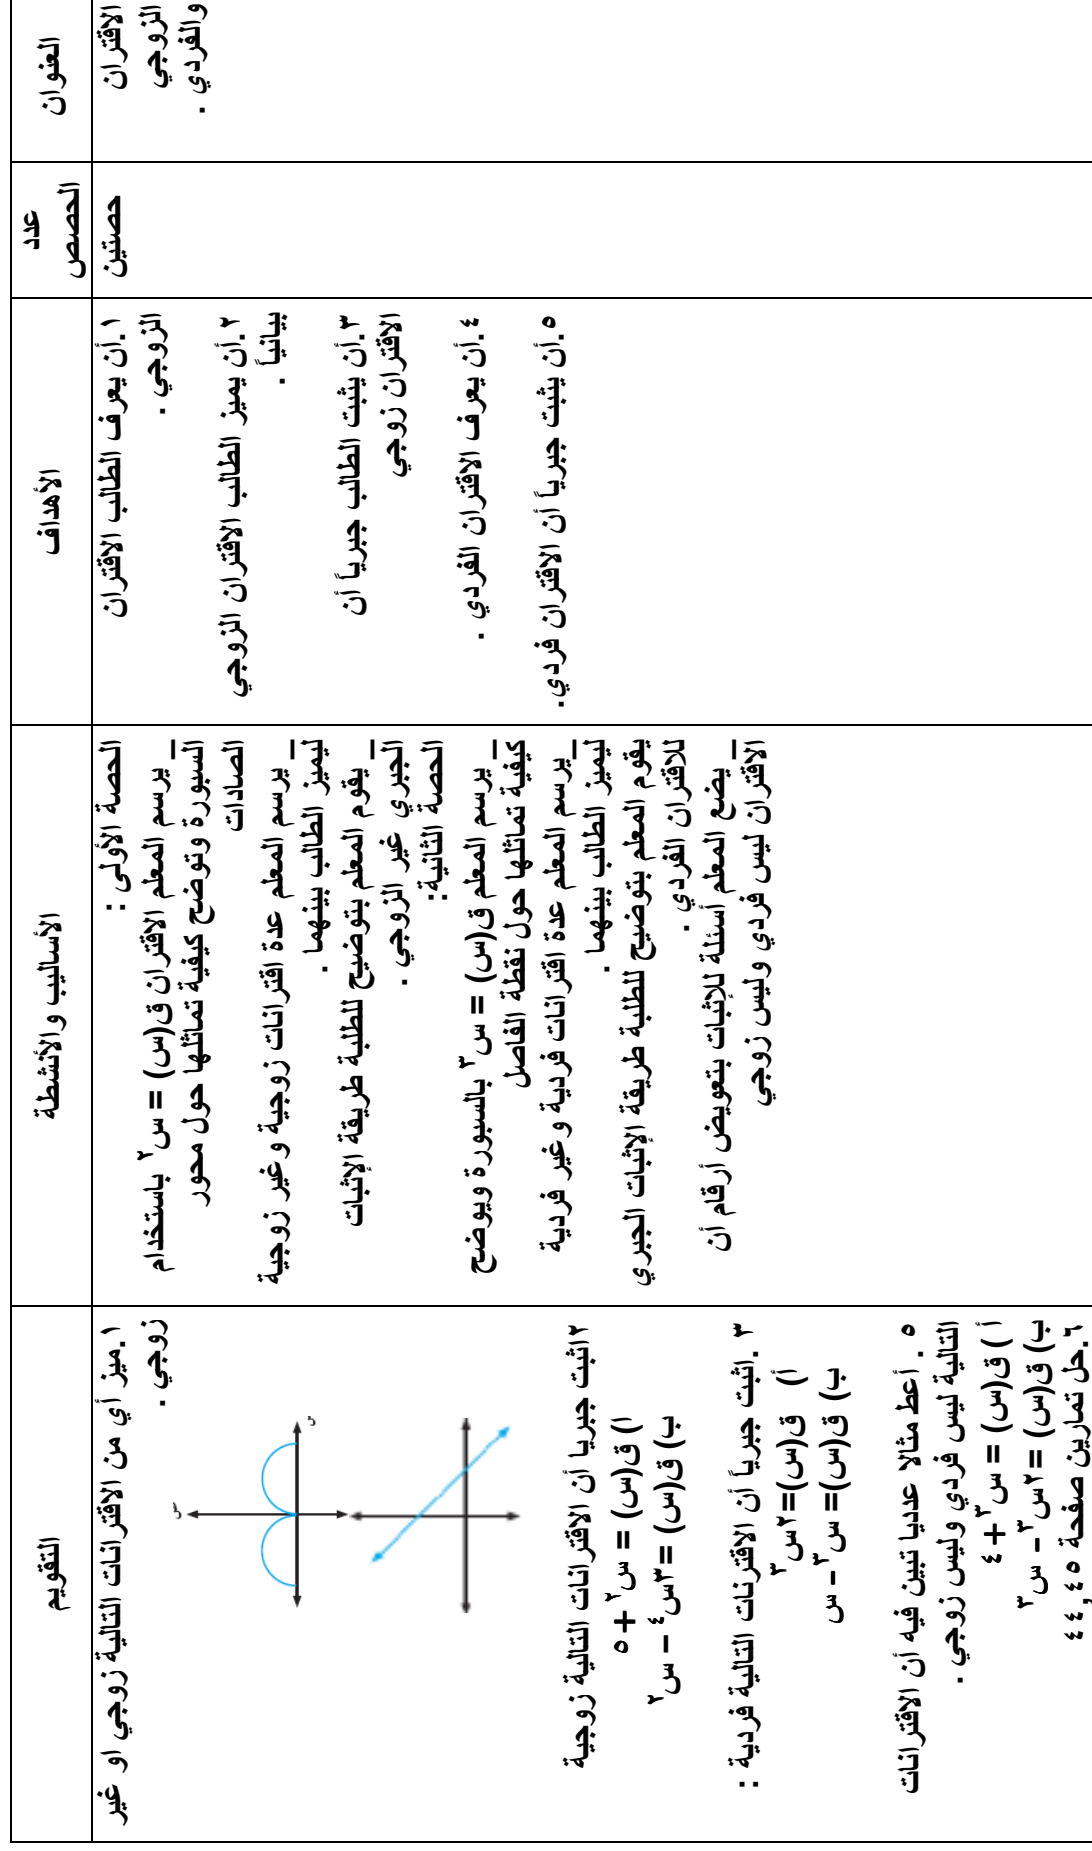 العنوان
عدد
الحصص
الأهداف
الأساليب والأنشطة
التقويم
الاقتران
الزوجي
والفردي .
حصتين
١.أن يعرف الطالب الاقتران
الزوجي .
٢.أن يميز الطالب الاقتران الزوجي
بيانياً .
٣.أن يثبت الطالب جبرياً أن
الاقتران زوجي
٤.أن يعرف الاقتران الفردي .
٥.أن يثبت جبرياً أن الاقتران فردي.
الحصة الأولى :
_ يرسم المعلم الاقتران ق(س) = س٢ باستخدام
السبورة وتوضح كيفية تماثلها حول محور
الصادات
_ يرسم المعلم عدة اقترانات زوجية وغير زوجية
ليميز الطالب بينهما .
_ يقوم المعلم بتوضيح للطلبة طريقة الإثبات
الجبري غير الزوجي .
الحصة الثانية:
_ يرسم المعلم ق(س) = س٣ بالسبورة ويوضح
كيفية تماثلها حول نقطة الفاصل
_ يرسم المعلم عدة اقترانات فردية وغير فردية
ليميز الطالب بينهما .
يقوم المعلم بتوضيح للطلبة طريقة الإثبات الجبري
للاقتران الفردي .
_ يضع المعلم أسئلة للإثبات بتعويض أرقام أن
الاقتران ليس فردي وليس زوجي
١.ميز أي من الاقترانات التالية زوجي او غير
زوجي .
ص
س
٢اثبت جبريا أن الاقترانات التالية زوجية
ا) ق(س) = س٢ + ٥
ب) ق(س) =٣س٤ – س٢
٣ .اثبت جبرياً أن الاقترنات التالية فردية :
أ) ق(س)=٢س٣
ب) ق(س)= س٣ – س
٥ . أعط مثالا عدديا تبين فيه أن الاقترانات
التالية ليس فردي وليس زوجي .
أ ) ق(س) = س٣ + ٤
ب) ق(س) =٢س٣ – س٢
٦.حل تمارين صفحة ٤٥ ,٤٤